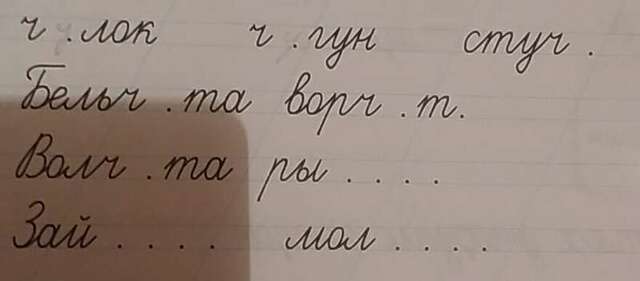 ч . лок ч . гун стуч .
Бельч . та ворч . т.
Волч . та ры . . . .
Зай . . . . мол . . . .